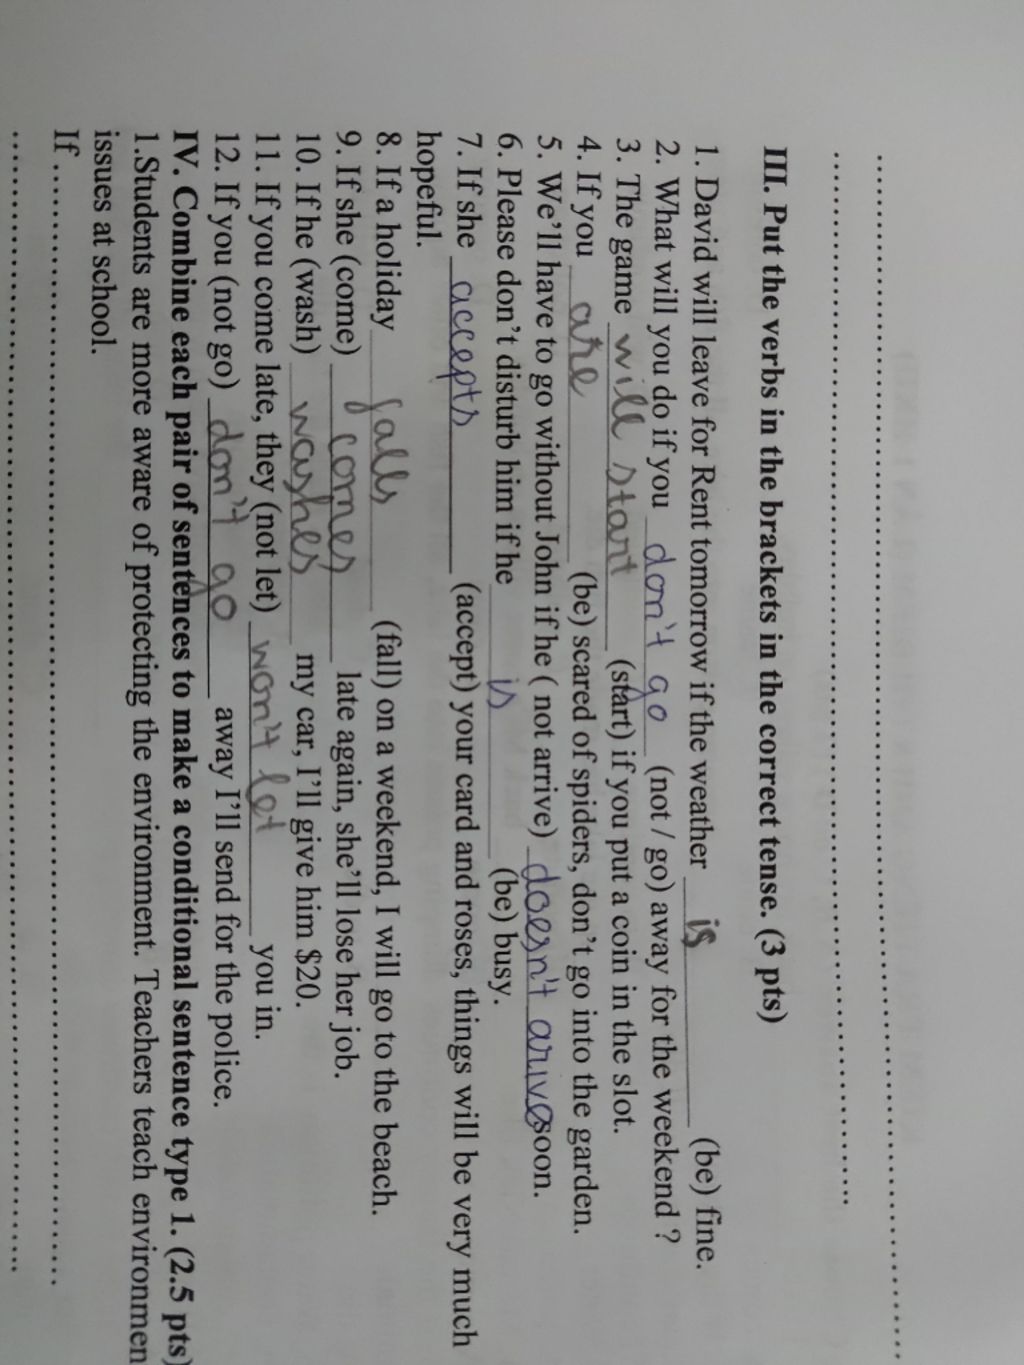 III. Put the verbs in the brackets in the correct tense. (3 pts)
1. David will leave for Rent tomorrow if the weather is (be) fine.
2. What will you do if you don't go (not / go) away for the weekend ?
3. The game will start (start) if you put a coin in the slot.
4. If you are (be) scared of spiders, don't go into the garden.
5. We'll have to go without John if he ( not arrive) doesn't arive soon.
6. Please don't disturb him if he is (be) busy.
7. If she accepts (accept) your card and roses, things will be very much
hopeful.
8. If a holiday falls (fall) on a weekend, I will go to the beach.
9. If she (come) comes late again, she'll lose her job.
10. If he (wash) washes my car, I'll give him $20.
11. If you come late, they (not let) won't let you in.
12. If you (not go) don't go away I'll send for the police.
IV. Combine each pair of sentences to make a conditional sentence type 1. (2.5 pts)
1.Students are more aware of protecting the environment. Teachers teach environmen
issues at school.
If